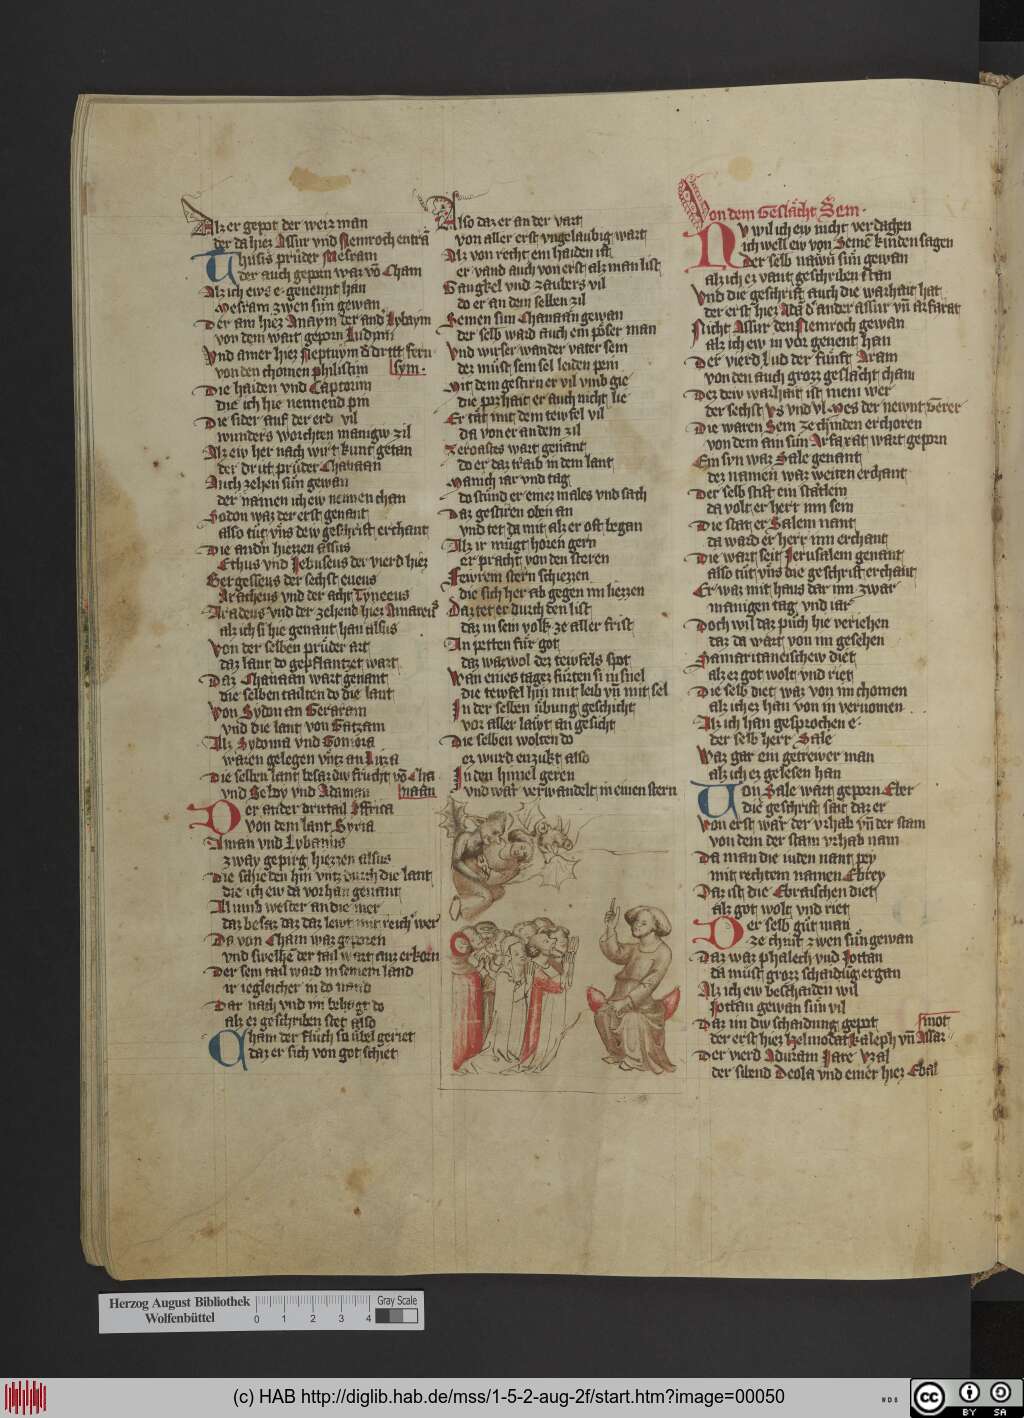 Alz er gepot der weiz man
der da hiez Assur vnd Nemroch entra
Thusis prüder Mesram
der auch geporn war vo Cham
Alz ich ews e genennt han
Mesram zwen sun gewan
Der ain hiez Anaym der and Lybaym
von dem wart geporn Ludim
Vnd ainer hiez Neptuym d dritt fern
von den chomen philistim
sym
Die haiden vnd Captorim
die ich hie nennend pin
Die sider auf der erd vil
wunders worchten manigw zil
Alz ew her nach wirt kunt getan
der drit prüder Chanaan
Auch zehen sun gewan
der namen ich ew nennen chan
Sydon waz der erst genant
also tüt vns dew geschrift erchant
Die andn hiezzen alsus
Ethus vnd Jebuseus der vierd hiez
Gergesseus der sechst eueus
Aracheus vnd der acht Tyneeus
Aradeus vnd der zehend hiez Amateus
alz ich si hie genant han alsus
Von der selben prüder art
daz lant do gepflantzet wart
Daz Chanaan wart genant
die selben tailten do die lant
Von Sydon an Geraram
vnd die lant von Gatzam
Alz Sydoma vnd Gomora
waren gelegen vntz an Luza
Die selben lant besaz diw frucht vo Cha
naan
vnd Seldv vnd Adamam
Der ander drittail Affrica
Von dem lant Syria
Aman vnd Lybanus
zway gepirg hiezzen alsus
Die schieden hin vntz durch die lant
die ich ew da vor han genant
Al vmb wester an die mer
daz besaz daz daz lewt mit reicher wer
Da von Cham waz geporen
vnd swelhe der tail wart auz erkorn
Der sein tail ward in seinem land
ir iegleicher in do nand
Dar nach vnd im behagt do
alz ez geschriben stet also
Cham der fluch so übel geriet
daz er sich von got schiet
Also daz er an der vart
von aller erst vngelaubig wart
Alz von recht ein haiden ist
er vand auch von erst alz man list
Gaugkel vnd zaubers vil
do er an dem selben zil
Seinen sun Chanaan gewan
der selb ward auch ein pöser man
Vnd wirser wan der vater sein
dez müst sein sel leiden pein
Mit dem gestirn er vil vmb gie
die porzhait er auch nicht lie
Er tät mit dem tewfel vil
da von er an dem zil
Zeroastes wart genant
do er daz traib in dem lant
Manich iar vnd tag
do stünd er einez males vnd sach
Daz gestiren oben an
vnd tet da mit alz er oft began
Alz ir mügt horen gern
er pracht von den steren
Fewrein stern schiezzen
die sich her ab gegen im liezzen
Daz tet er durch den list
daz in sein volk ze aller frist
An petten für got
daz waz wol dez tewfels spot
Wan eines tagez fürten si in snel
die tewfel hin mit leib vn mit sel
In der selben übung geschicht
vor aller läwt an gesicht
Die selben wolten do
ez wurd enzukt also
In den himel geren
vnd wär verwandelt in einen stern
Von dem Geslächt Sem
Nv wil ich ew nicht verdagen
ich well ew von Seme kinden sagen
Der selb nawn sün gewan
alz ich ez vant geschriben stan
Vnd die geschrift auch die warhait hat
der erst hiez Ada d ander assur vn arfaxat
Nicht Assur den Nemroch gewan
alz ich ew in vor genent han
Der vierd Lud der fünft Aram
von den auch grozz geslächt cham
Dez dew warhait ist mein wer
der sechst Vs vnd vl Mes der newnt
Die waren Sem ze chinden erchoren
von dem ain sun Arfaxat wart geporn
Ein syn waz Sale genant
dez namen waz weiten erchant
Der selb stift ein statlein
da wolt er herr inn sein
Die stat er Salem nant
da ward er herr inn erchant
Die wart seit Jerusalem genant
also tüt vns die geschrift erchant
Er waz mit haus dar inn zwar
manigen tag vnd iar
Doch wil daz püch hie veriehen
daz da wart von im gesehen
Samaritaneischew diet
alz ez got wolt vnd riet
Die selb diet waz von im chomen
alz ich ez han von in vernomen
Alz ich han gesprochen e
der selb herr Sale
Waz gar ein getrewer man
alz ich ez gelesen han
Von Sale wart geporn Eber
die geschrift sait daz er
Von erst wär der vrhab vn der stam
von dem der stam vrhab nam
Da man die iuden nant pey
mit rechtem namen Ebrey
Daz ist die Ebraischen diet
alz got wolt vnd riet
Der selb güt man
ze chint zwen sün gewan
Daz waz phalech vnd Jottan
da müst grozz schaidüg ergan
Alz ich ew beschaiden wil
Jottan gewan sün vil
Daz im diw schaidung gepot
mot
der erst hiez Helmodat Kaleph vn Assar
Der vierd Aduram Jare Vzal
der sibend Deola vnd einer hiez Ebal
Herzog August Bibliothek
Wolfenbüttel
0 1 2 3 4
Gray Scale
(c) HAB http://diglib.hab.de/mss/1-5-2-aug-2f/start.htm?image=00050
WDB
cc BY SA